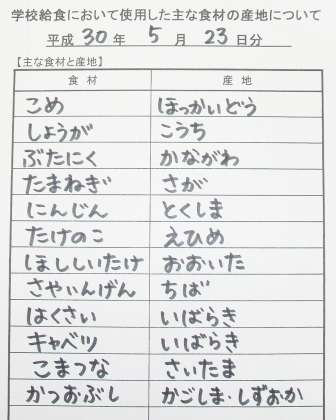 学校給食において使用した主な食材の産地について
平成 30 年 5 月 23 日分
【主な食材と産地】
食材 産地
こめ ほっかいどう
しょうが こうち
ぶたにく かながわ
たまねぎ さが
にんじん とくしま
たけのこ えひめ
ほししいたけ おおいた
さやいんげん ちば
はくさい いばらき
キャベツ いばらき
こまつな さいたま
かつおぶし かごしま・しずおか